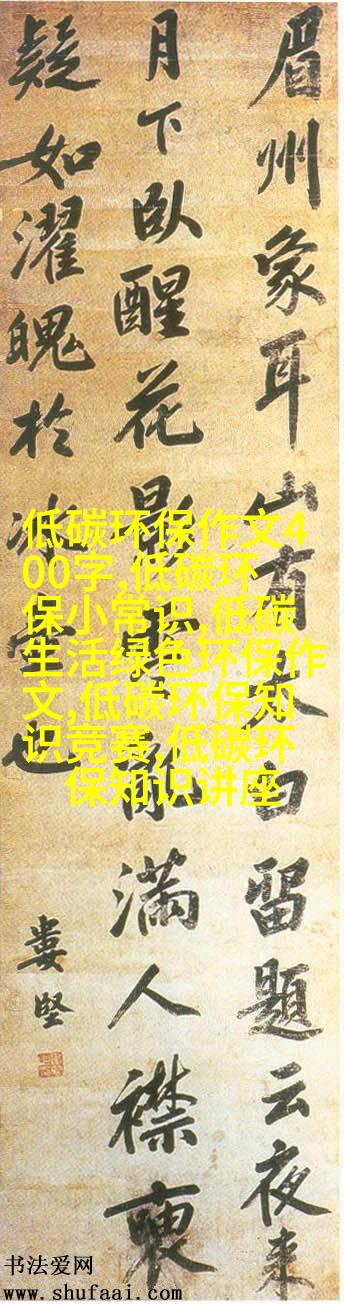 眉州象耳山有太白留題云夜来
月下臥醒花影滿人襟
疑如濯魄於冰壺也
婁堅
低碳环保作文4
00字,低碳环
保小常识,低碳
生活绿色环保作
文,低碳环保知
识竞赛,低碳环
保知识讲座
书法爱网
www.shufaai.com